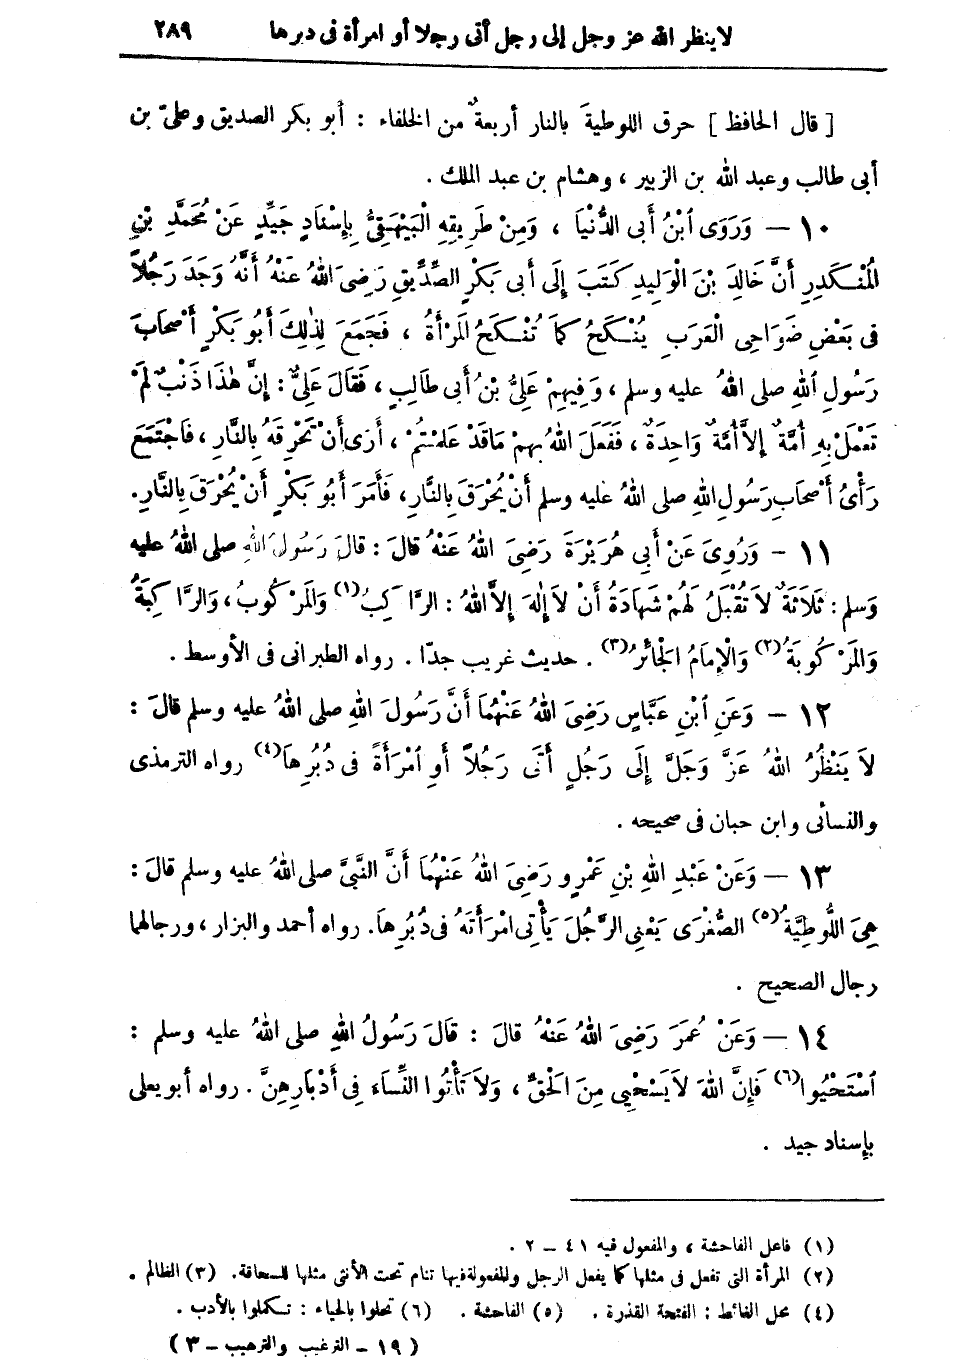 لاينظر الله عز وجل إلى رجل أتى رجلا أو امرأة فى دبرها ٢٨٩
[ قال الحافظ ] حرق اللوطيةَ بالنار أربعةٌ من الخلفاء : أبو بكر الصديق وعلىّ بن
أبى طالب وعبد الله بن الزبير ، وهشام بن عبد الملك .
١٠ — وَرَوَى ٱبْنُ أَبى الدُّنْيَا ، وَمِنْ طَرِيقِهِ الْبَيْهَقِىُّ بِإِسْنَادٍ جَيِّدٍ عَنْ مُحَمَّدِ بْنِ
الْمُنْكَدِرِ أَنَّ خَالِدَ بْنَ الْوَلِيدِ كَتَبَ إِلَى أَبى بَكْرٍ الصِّدِّيقِ رَضِىَ اللهُ عَنْهُ أَنَّهُ وَجَدَ رَجُلاً
فى بَعْضِ ضَوَاحِى الْعَرَبِ يُنْكَحُ كَمَا تُنْكَحُ المَرْأَةُ ، فَجَمَعَ لِذٰلِكَ أَبُو بَكْرٍ أَصْحَابَ
رَسُولِ ٱللهِ صلى اللهُ عليه وسلم ، وَفِيهِمْ عَلِىُّ بْنُ أَبى طَالِبٍ ، فَقَالَ عَلِىٌّ : إِنَّ هٰذَا ذَنْبٌ لَمْ
تَعْمَلْ بِهِ أُمَّةٌ إِلاَّ أُمَّةٌ وَاحِدَةٌ ، فَفَعَلَ اللهُ بِهِمْ مَا قَدْ عَلِمْتُمْ ، أَرَى أَنْ تَحْرِقَهُ بِالنَّارِ ، فَاجْتَمَعَ
رَأْىُ أَصْحَابِ رَسُولِ اللهِ صلى اللهُ عليه وسلم أَنْ يُحْرَقَ بِالنَّارِ ، فَأَمَرَ أَبُو بَكْرٍ أَنْ يُحْرَقَ بِالنَّارِ .
١١ - وَرُوِىَ عَنْ أَبِى هُرَيْرَةَ رَضِىَ اللهُ عَنْهُ قالَ : قالَ رَسُولُ اللهِ صلى اللهُ عليه
وَسلم : ثَلَاثَةٌ لاَ تُقْبَلُ لَهُمْ شَهَادَةُ أَنْ لاَ إِلٰهَ إِلاَّ اللهُ : الرَّاكِبُ(١) وَالمَرْكُوبُ ، وَالرَّاكِبَةُ
وَالمَرْكُوبَةُ(٢) وَالْإِمَامُ الْجَائرُ(٣) . حديث غريب جدّا . رواه الطبرانى فى الأوسط .
١٢ — وَعَنِ ٱبْنِ عَبَّاسٍ رَضِىَ اللهُ عَنْهُمَا أَنَّ رَسُولَ اللهِ صلى اللهُ عليه وسلم قالَ :
لاَ يَنْظُرُ اللهُ عَزَّ وَجَلَّ إِلَى رَجُلٍ أَتَى رَجُلاً أَوِ ٱمْرَأَةً فى دُبُرِهَا(٤) رواه الترمذى
والنسائى وابن حبان فى صحيحه .
١٣ — وَعَنْ عَبْدِ اللهِ بْنِ عَمْرٍو رَضِىَ اللهُ عَنْهُمَا أَنَّ النَّبِىَّ صلى اللهُ عليه وسلم قالَ :
هِىَ اللُّوطِيَّةُ(٥) الصُّغْرَى يَعْنِى الرَّجُلَ يَأْتِى امْرَأَتَهُ فى دُبُرِهَا. رواه أحمد والبزار ، ورجالهما
رجال الصحيح .
١٤ — وَعَنْ عُمَرَ رَضِىَ اللهُ عَنْهُ قالَ : قَالَ رَسُولُ اللهِ صلى اللهُ عليه وسلم :
ٱسْتَحْيُوا(٦) فَإِنَّ اللهَ لاَ يَسْتَحْيِى مِنَ الْحَقِّ ، وَلاَ تَأْتُوا النِّسَاءَ فِى أَدْبَارِهِنَّ . رواه أبو يعلى
بإسناد جيد .
(١) فاعل الفاحشة ، والمفعول فيه ٤١ — ٢ .
(٢) المرأة التى تفعل فى مثلها كما يفعل الرجل وللمفعولة فيها تنام تحت الأنثى مثلها للسحاقة. (٣) الظالم .
(٤) محل الغائط : الفتحة القذرة . (٥) الفاحشة . (٦) تحلوا بالحياء : تكملوا بالأدب .
( ١٩ - الترغيب والترهيب - ٣ )